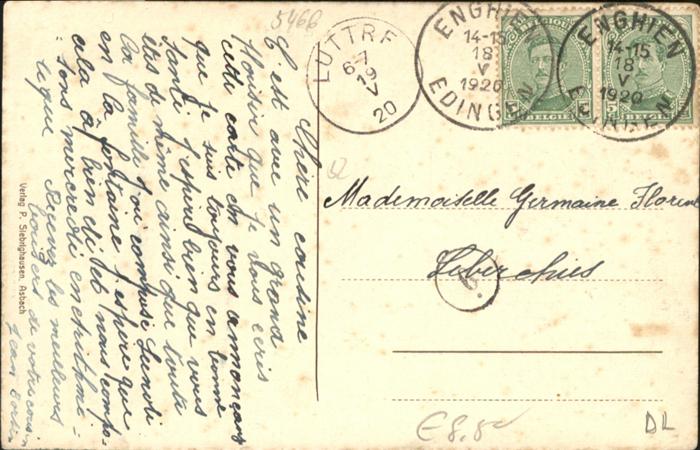 5466
LUTTRE
6-7
19
V
20
ENGHIEN
14-15
18
V
1920
EDINGEN
ENGHIEN
14-15
18
V
1920
BELGIE
BELGIE
Chère cousine
C'est avec un grand
plaisir que je vous écris
cette carte en vous annonçant
que je suis toujours en bonne
santé j'espère bien que vous
êtes de même ainsi que toute
la famille j'ai composé lundi
en la j'espère que
cela a bien été et nous compo-
sons mercredi en arithmé-
tique
Recevez les meilleurs
baisers de votre cousin
Jean
Verlag P. Siebrighausen, Asbach
Mademoiselle Germaine Florent
Liberchies
6.
€8,80
DL